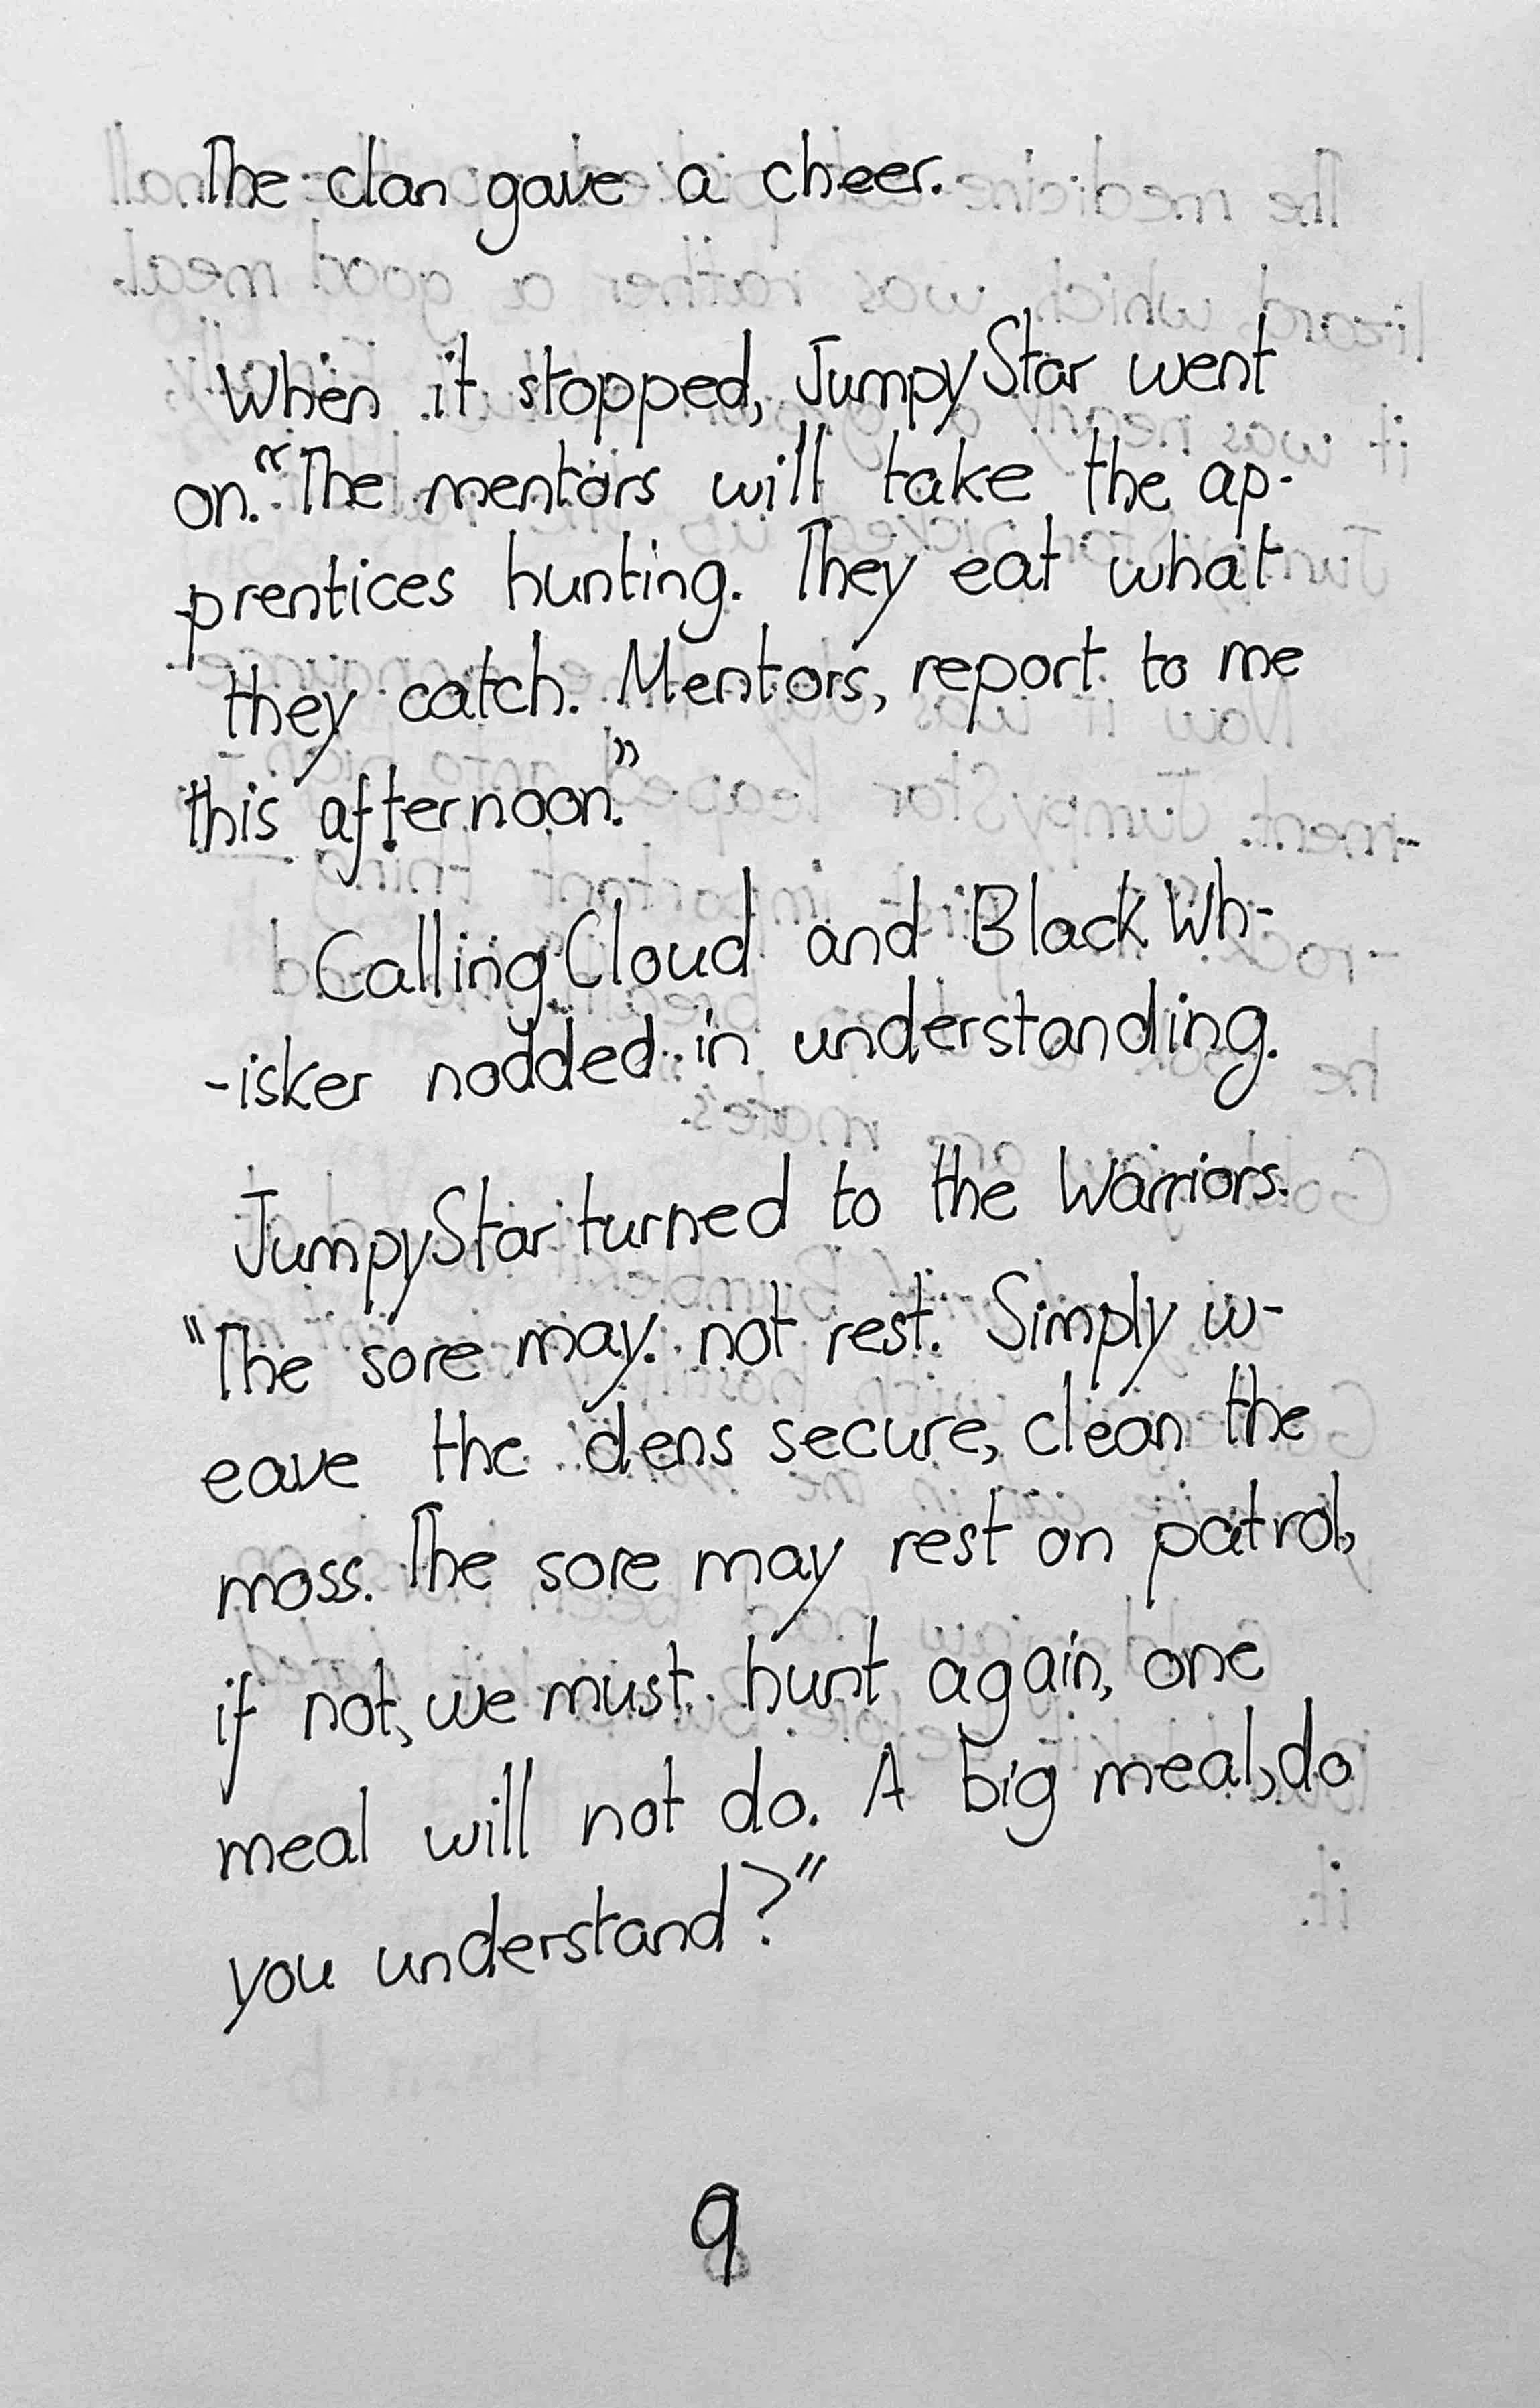 The clan gave a cheer.
When it stopped, JumpyStar went
on. “The mentors will take the ap-
-prentices hunting. They eat what
they catch. Mentors, report to me
this afternoon.”
CallingCloud and Black Wh-
-isker nodded in understanding.
JumpyStar turned to the Warriors.
"The sore may not rest. Simply w-
eave the dens secure, clean the
moss. The sore may rest on patrol,
if not, we must hunt again, one
meal will not do. A big meal, do
you understand?"
9